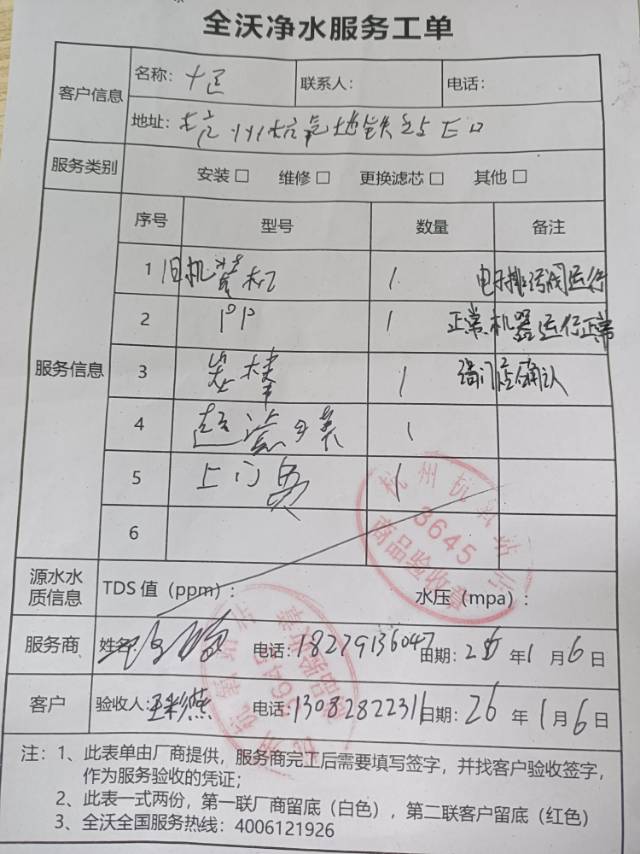 全沃净水服务工单
客户信息
名称：十足
联系人：
电话：
地址：杭州杭氧地铁站E口
服务类别
安装□ 维修□ 更换滤芯□ 其他□
服务信息
序号 型号 数量 备注
1 旧机装机 1 电子排污阀运行
2 PP 1 正常.机器运行正常
3 1 请门店确认
4 1
5 上门费 1
6
杭州杭氧站
3645
商品验收章
源水水质信息
TDS 值（ppm）： 水压（mpa）：
服务商 姓名: 电话:18279136047 日期: 26 年1月6日
客户 验收人:王彩燕 电话:13082822316 日期: 26 年1月6日
注：1、此表单由厂商提供，服务商完工后需要填写签字，并找客户验收签字，
作为服务验收的凭证；
2、此表一式两份，第一联厂商留底（白色），第二联客户留底（红色）
3、全沃全国服务热线：4006121926